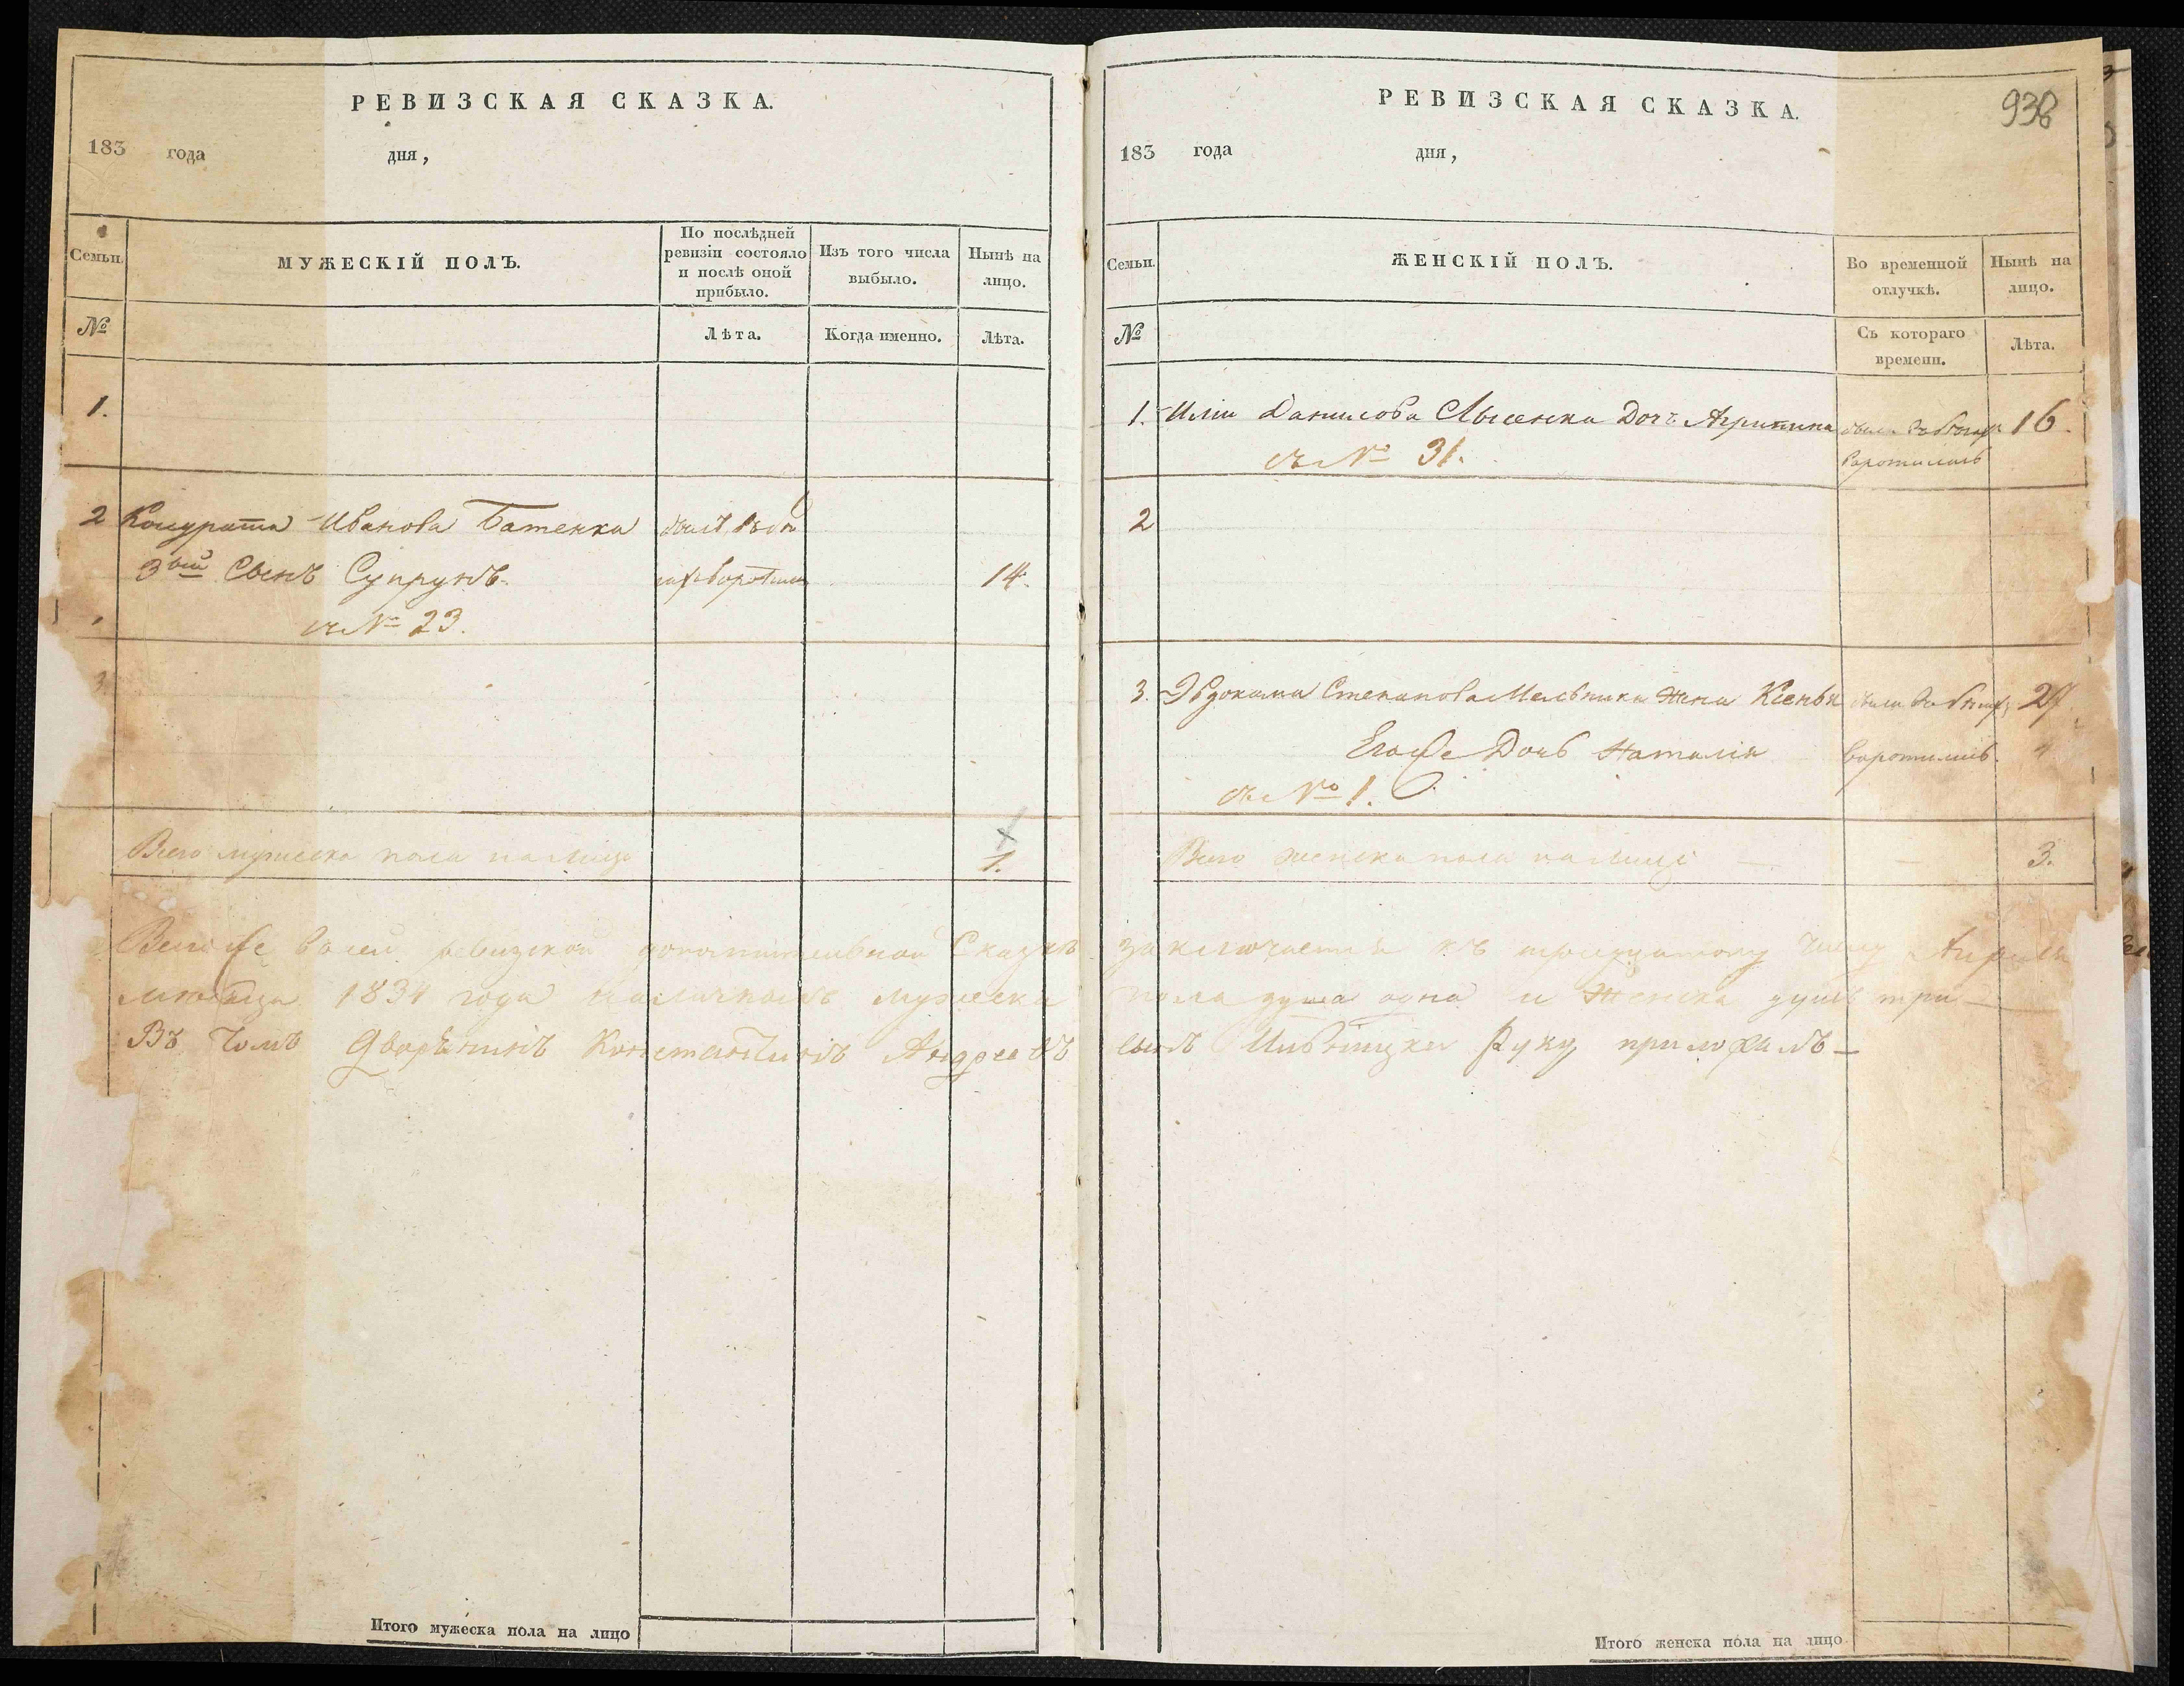 РЕВИЗСКАЯ СКАЗКА.
183 года дня,
Семьи.
МУЖЕСКІЙ ПОЛЪ.
По послѣдней
ревизіи состояло
и послѣ оной
прибыло.
Изъ того числа
выбыло.
Нынѣ на
лицо.
№
Лѣта.
Когда именно.
Лѣта.
1.
2 Кондрата Иванова Батенка
3ій Сынъ Супрунъ 14.
съ № 23.
3.
Всего мужеска пола на лицо 1.
Итого мужеска пола на лицо
РЕВИЗСКАЯ СКАЗКА.
938
183 года дня,
Семьи.
ЖЕНСКІЙ ПОЛЪ.
Во временной
отлучкѣ.
Нынѣ на
лицо.
№
Съ котораго
времени.
Лѣта.
1. Иліи Данилова Лысенка Дочь Агрипина 16.
съ № 31.
2
3. Эвдокима Степанова Мельника Жена Ксенья 27
Егоже Дочь Наталія воротились. 4
съ № 1.
Всего женска пола на лице 3.
Всего же въ сей ревизской дополнительной Сказкѣ заключается къ тридцатому числу Апреля
мѣсяца 1834 года наличныхъ мужеска пола душа одна и Женска душъ три
Въ томъ Дворянинъ Константинъ Андреевъ сынъ руку приложилъ
Итого женска пола на лицо